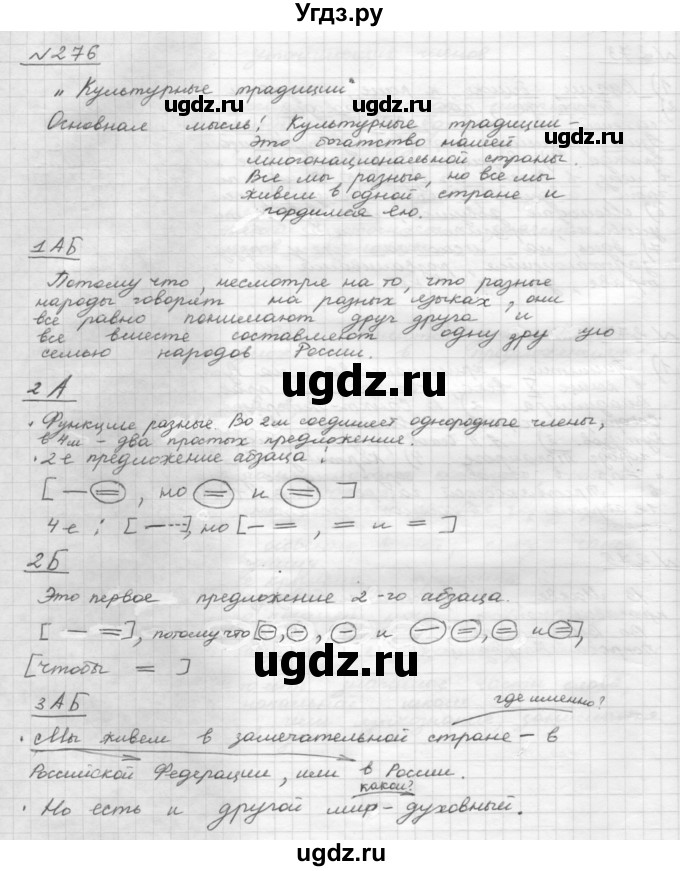 Угдз.ру
№276
„Культурные традиции"
Основная мысль: Культурные традиции –
это богатство нашей
многонациональной страны.
Все мы разные, но все мы
живем в одной стране и
гордимся ею.
1 АБ
Потому что, несмотря на то, что разные
народы говорят на разных языках, они
все равно понимают друг друга и
все вместе составляют одну дружную
семью народов России.
2 А
• Функции разные. Во 2м соединяет однородные члены,
в 4м – два простых предложения.
• 2-е предложение абзаца:
[ – = , но = и = ]
4-е: [ – -·-·], но [ – = , = и = ]
2Б
Это первое предложение 2-го абзаца.
[ – = ], потому что [ –, –, – и – =, = и = ],
[чтобы = ]
3 АБ
где именно?
• Мы живем в замечательной стране – в
Российской Федерации, или в России.
какой?
• Но есть и другой мир – духовный.
ugdz.ru
ugdz.ru
ugdz.ru
ugdz.ru
ugdz.ru
ugdz.ru
ugdz.ru
ugdz.ru
ugdz.ru
ugdz.ru